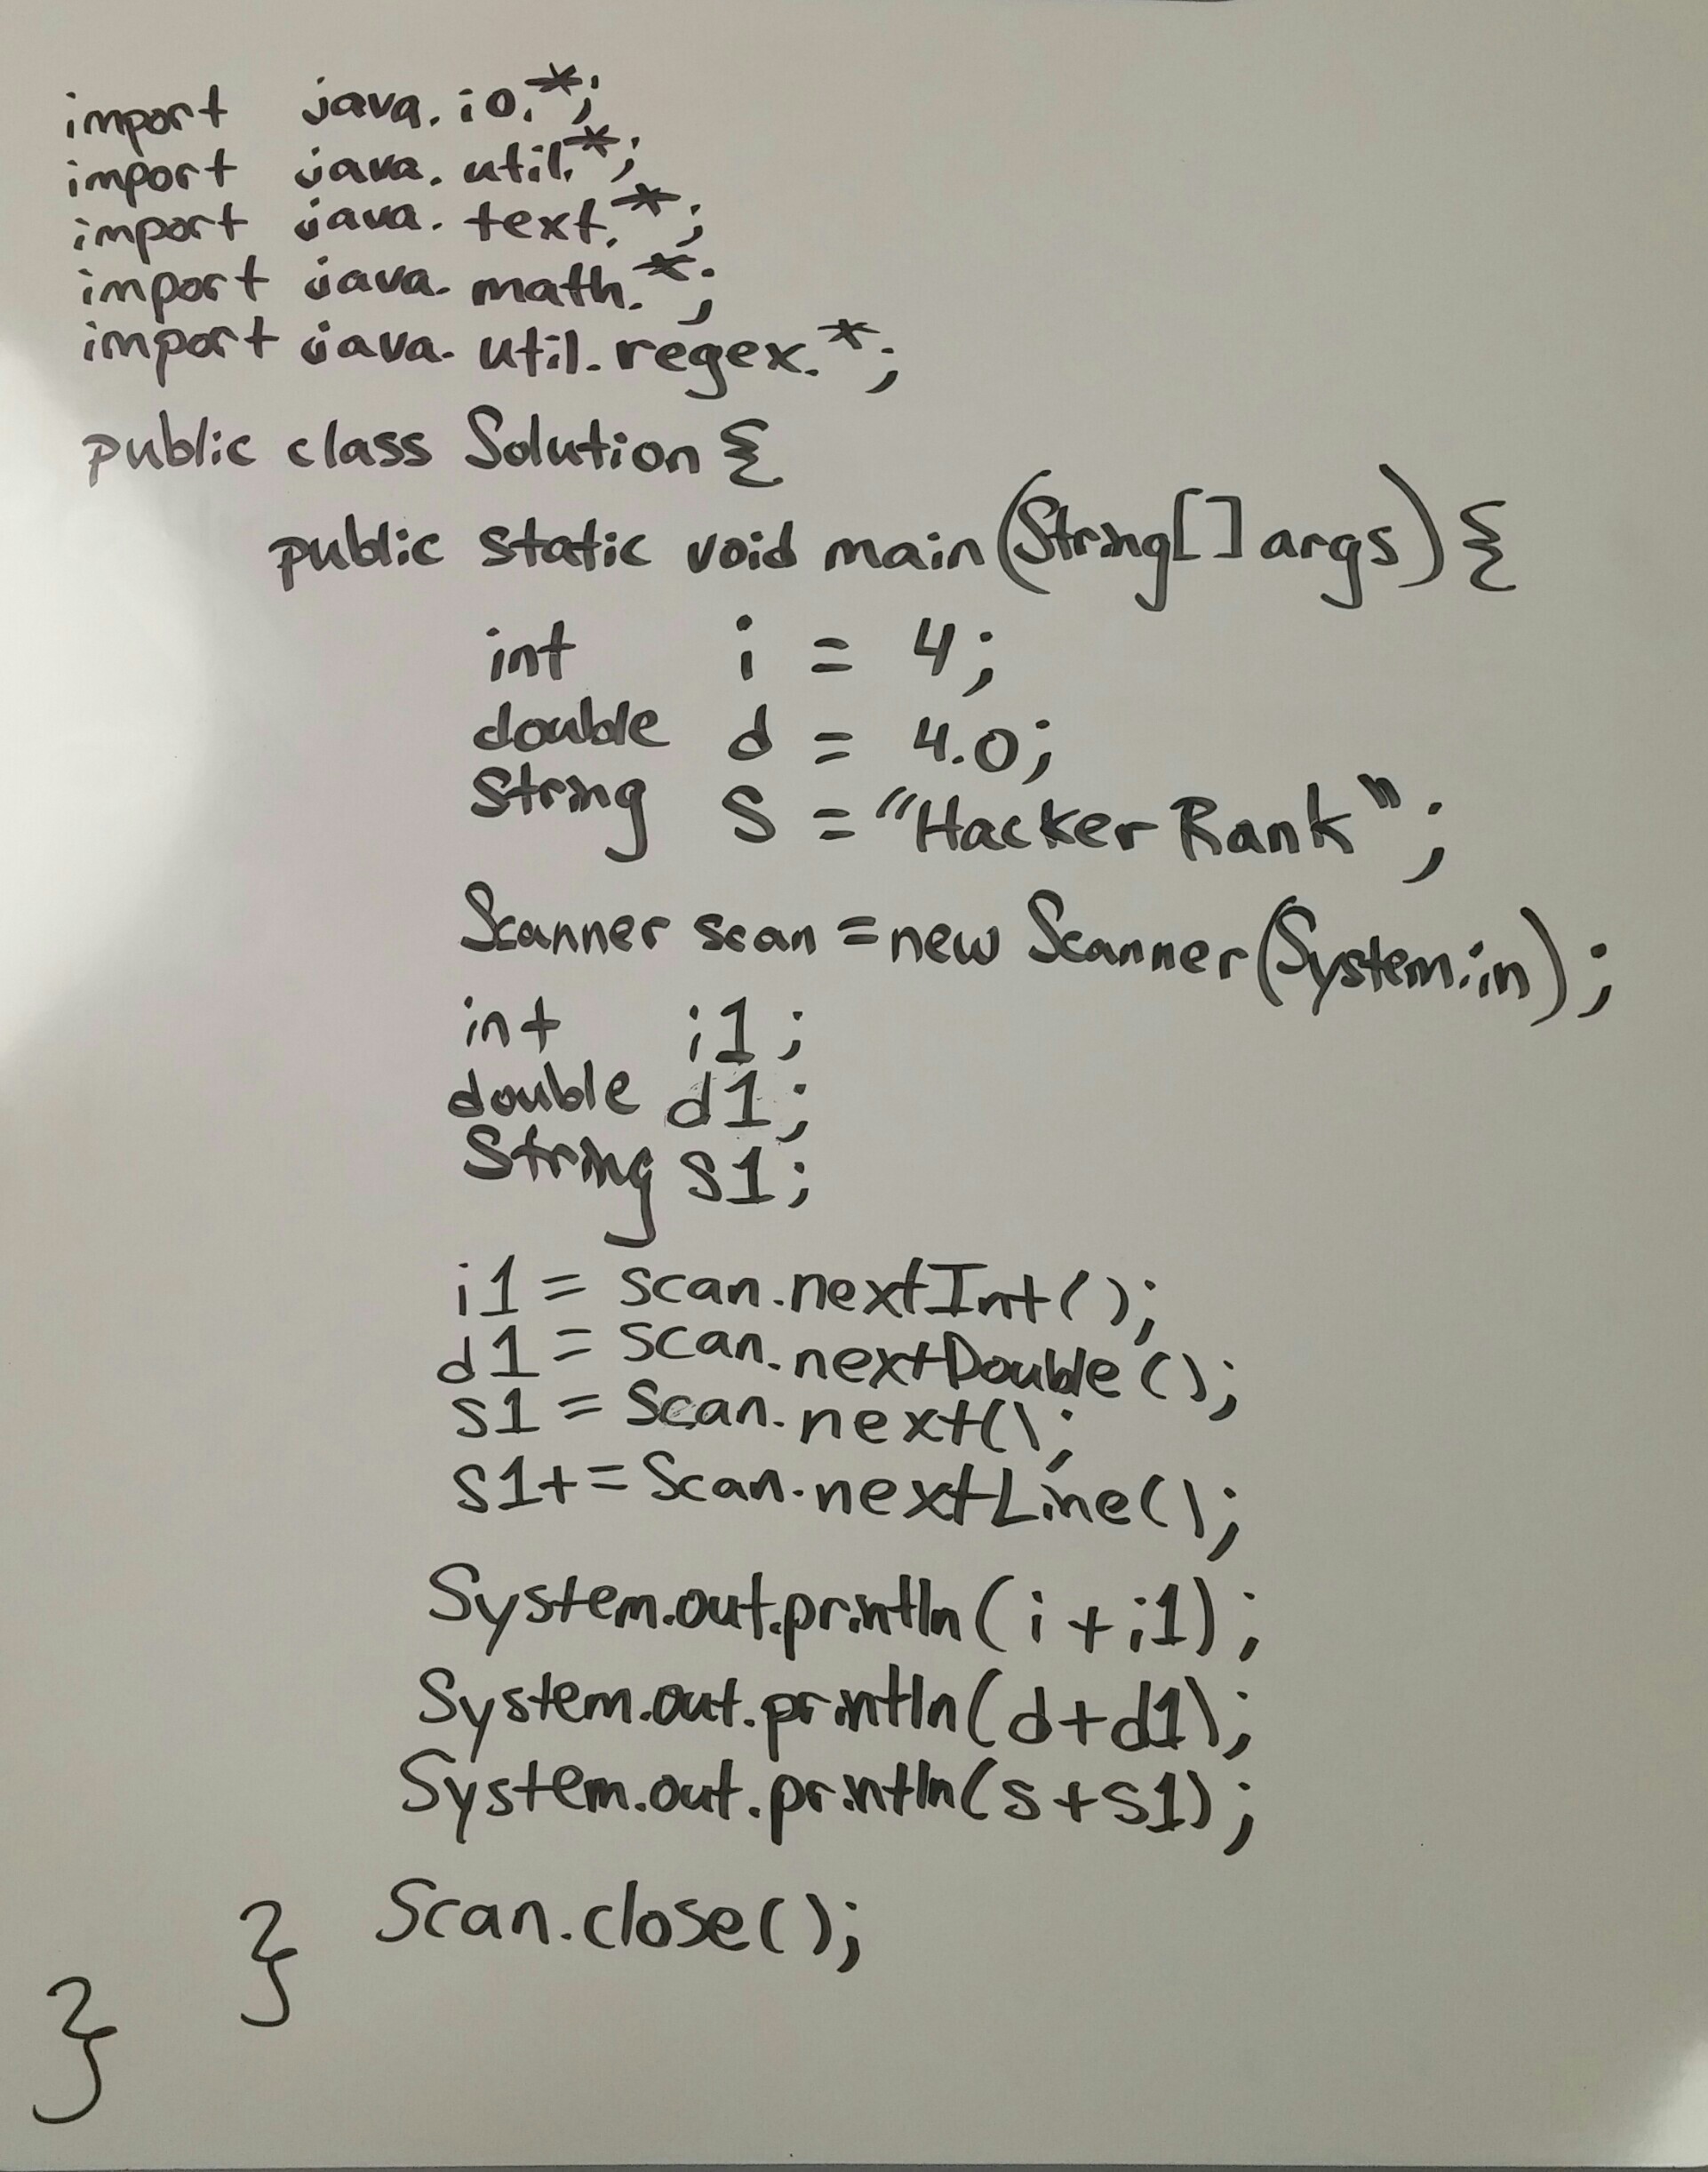 import java.io.*;
import java.util.*;
import java.text.*;
import java.math.*;
import java.util.regex.*;
public class Solution {
public static void main(String[] args) {
int i = 4;
double d = 4.0;
String s = "Hacker Rank";
Scanner scan = new Scanner(System.in);
int i1;
double d1;
String s1;
i1 = scan.nextInt();
d1 = scan.nextDouble();
s1 = Scan.next();
s1+= Scan.nextLine();
System.out.println(i+i1);
System.out.println(d+d1);
System.out.println(s+s1);
Scan.close();
}
}